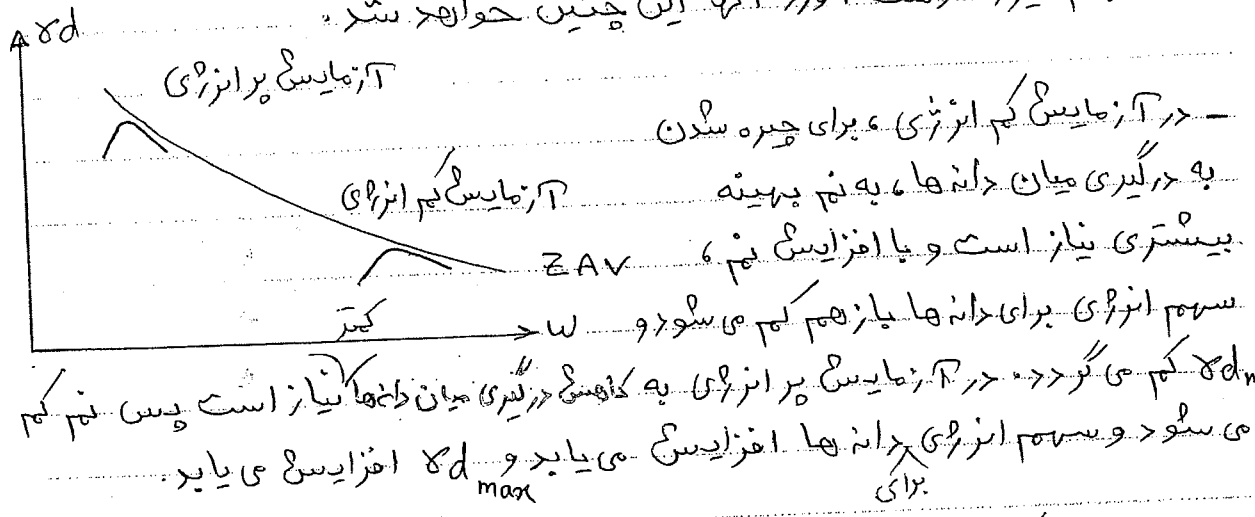 این چنین خواهد شد.
γd
آزمایش پر انرژی
– در آزمایش کم انرژی، برای چیره شدن
به درگیری میان دانه ها، به نم بهینه
آزمایش کم انرژی
بیشتری نیاز است و با افزایش نم،
ZAV
سهم انرژی برای دانه ها باز هم کم می شود و
ω
کمتر
γd کم می گردد. در آزمایش پر انرژی به کاهش درگیری میان دانه ها نیاز است پس نم کم
می شود و سهم انرژی برای دانه ها افزایش می یابد و γd max افزایش می یابد.